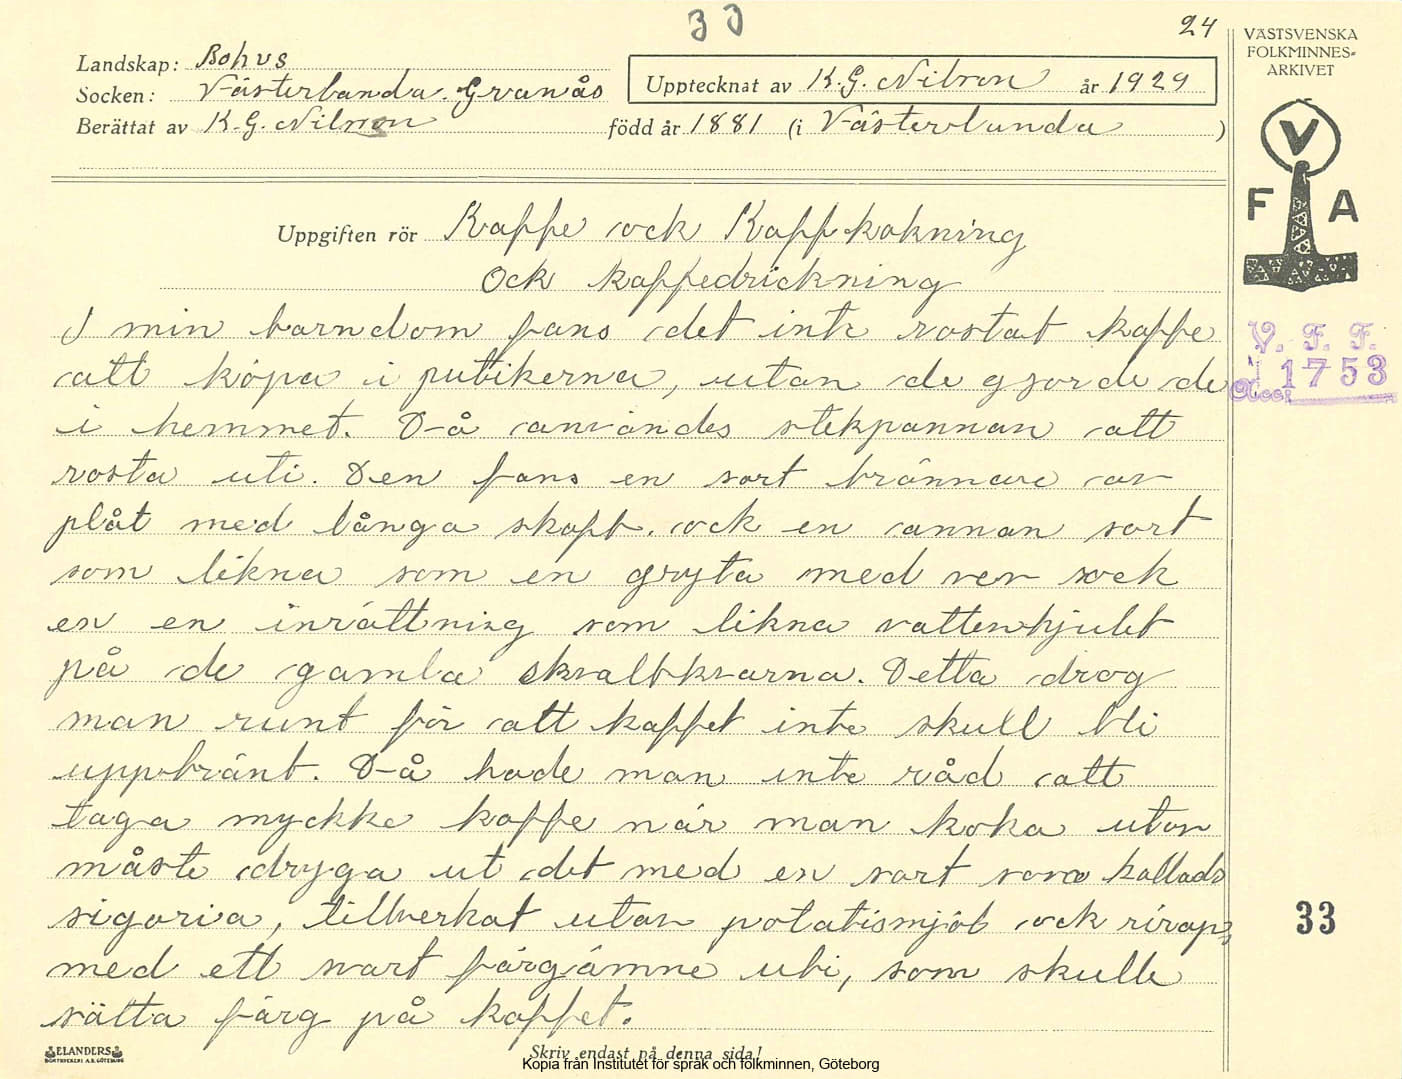 33
24
Landskap: Bohus
Socken: Västerlanda. Granås
Upptecknat av K.G. Nilsson år 1929
Berättat av K.G. Nilsson född år 1881 (i Västerlanda)
Uppgiften rör Kaffe ock Kaffkokning
Ock kaffedrickning
I min barndom fans det inte rostat kaffe
att köpa i putikerna, utan de gjorde de
i hemmet. Då användes stekpannan att
rosta uti. Den fans en sort brännare av
plåt med långa skaft. ock en annan sort
som likna som en gryta med vev ock
en en inrättning som likna vattenhjulet
på de gamla skvaltkvarna. Detta drog
man runt för att kaffet inte skull bli
uppbränt. Då hade man inte råd att
taga myckke kaffe när man koka utan
måste dryga ut det med en sort som kallads
sigoria, tillverkat utav potatismjöl ock sirap,
med ett svart färgämne uti, som skulle
sätta färg på kaffet.
VÄSTSVENSKA
FOLKMINNES-
ARKIVET
V
F A
V. F. F.
Acc. 1753
33
ELANDERS
BOKTRYCKERI A.B. GÖTEBORG
Skriv endast på denna sida!
Kopia från Institutet för språk och folkminnen, Göteborg